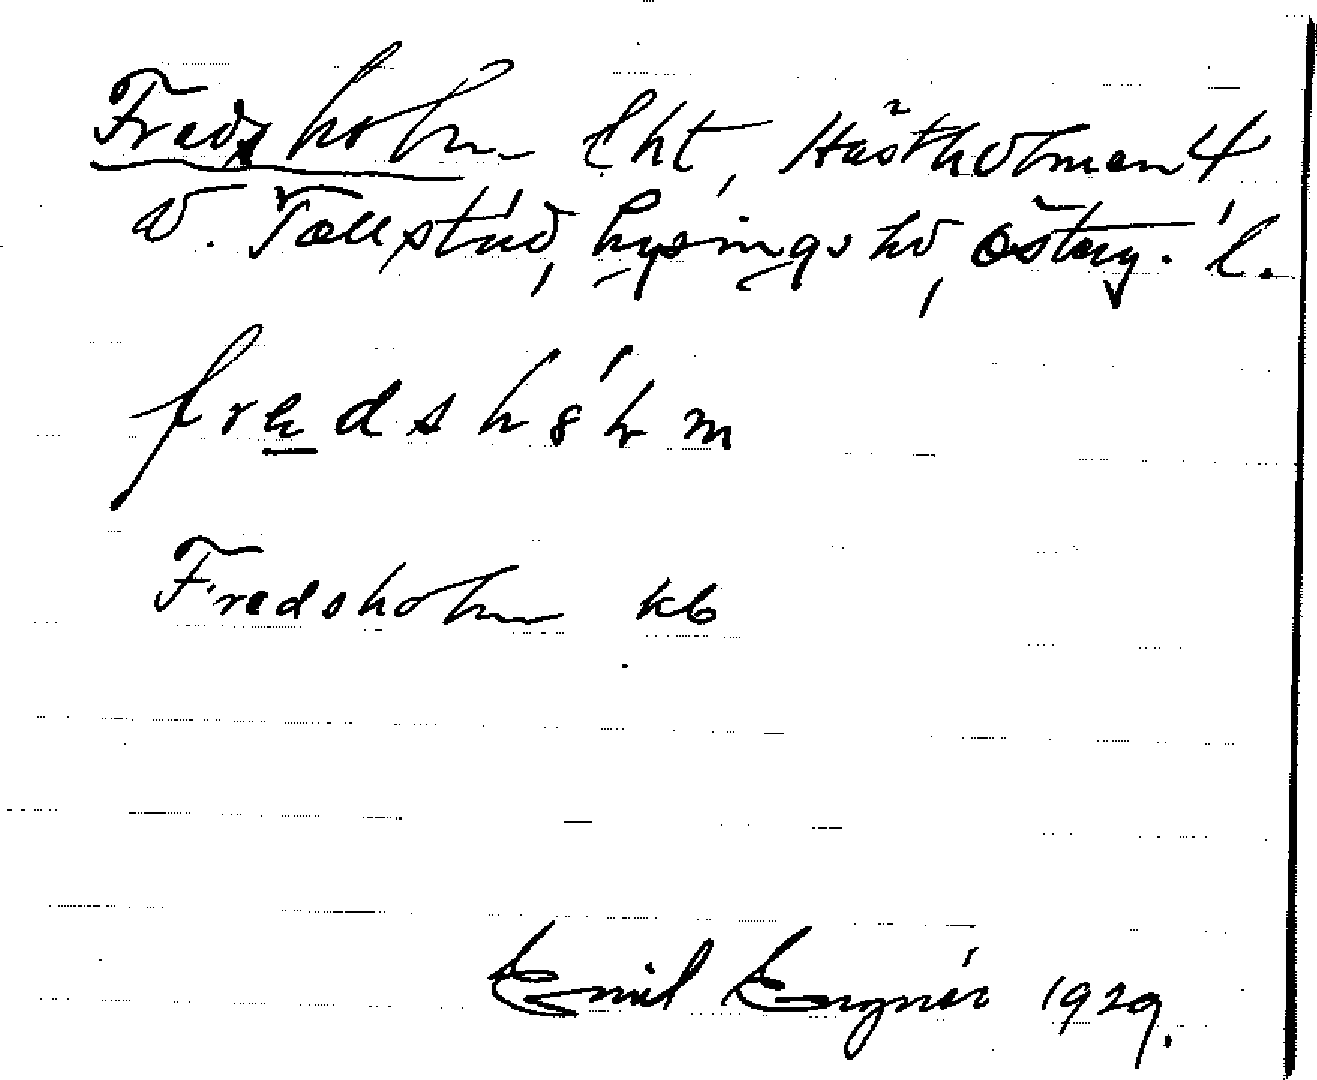 Fredsholm lht, Hästholmen 4
V. Tollstad, Lysings hd, Österg. l.
fredshólm
Fredsholm kb
Emil Engnér 1929.